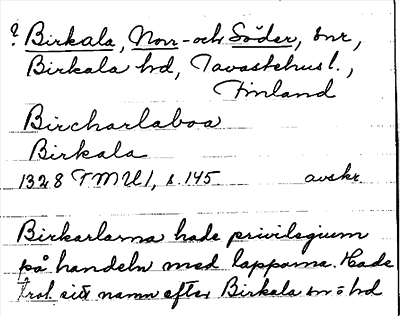 ? Birkala, Norr- och Söder, snr,
Birkala hd, Tavastehusl.,
Finland
Bircharlaboa
Birkala
1328 TMU 1, s. 145 avskr.
Birkarlarna hade privilegium
på handeln med lapparna. Hade
trol. sitt namn efter Birkala sn o hd